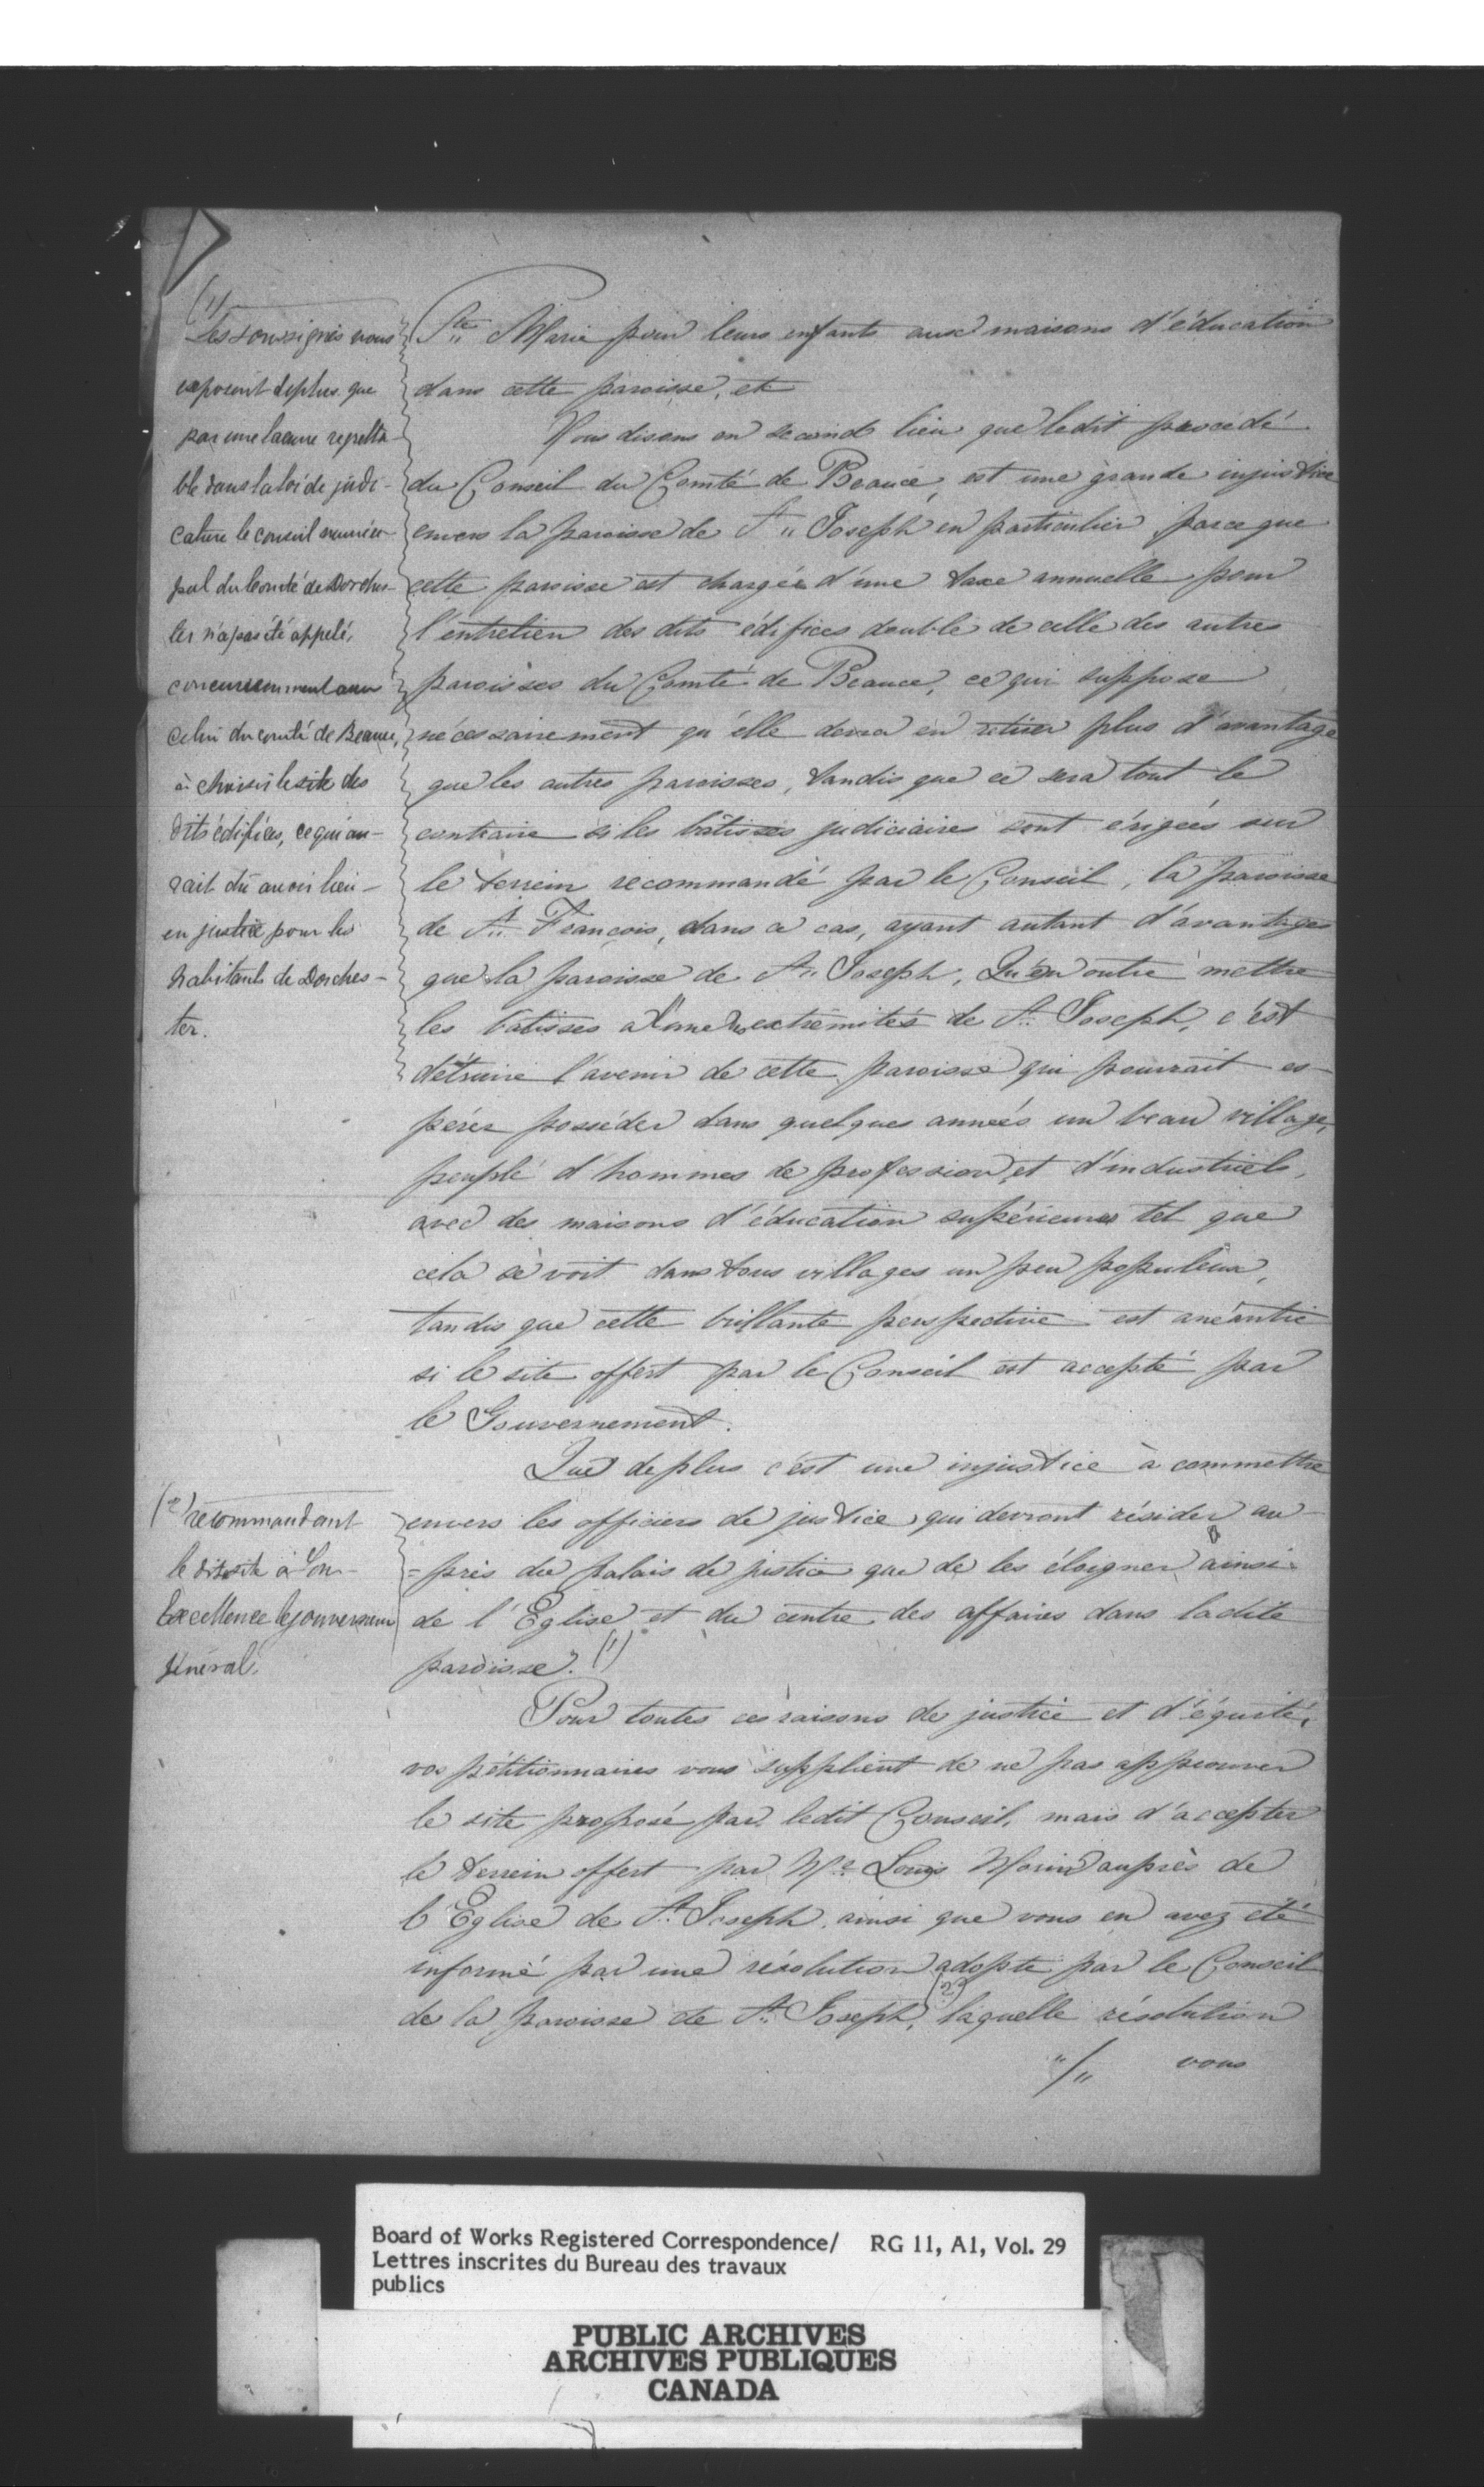 (1)
Les soussignés vous
exposent de plus que
par une lacune regretta
ble dans la loi de judi-
cature le conseil munici-
pal du Comté de Dorches-
ter n'a pas été appelé,
concurremment avec
celui du comté de Beauce,
à choisir le site des
dits édifices, ce qui au-
rait dû avoir lieu
en justice pour les
habitants de Dorches-
ter.
(2) recommandant
le dit site à Son
Excellence le gouverneur
général.
Ste Marie pour leurs enfants aux maisons d'éducation
dans cette paroisse, et
Nous disons en second lieu que ledit procédé
du Conseil du Comté de Beauce, est une grande injustice
envers la paroisse de St Joseph en particulier parce que
cette paroisse est chargée d'une taxe annuelle pour
l'entretien des dits édifices double de celle des autres
paroisses du Comté de Beauce, ce qui suppose
nécessairement qu'elle devra en retirer plus d'avantage
que les autres paroisses, tandis que ce sera tout le
contraire si les bâtisses judiciaires sont érigées sur
le terrein recommandé par le Conseil, la paroisse
de St François, dans ce cas, ayant autant d'avantages
que la paroisse de St Joseph, Qu'en outre mettre
les batisses à l'une des extrémités de St Joseph, c'est
détruire l'avenir de cette paroisse qui pourrait es-
pérer posséder dans quelques années un beau village,
peuplé d'hommes de profession et d'industriels,
avec des maisons d'éducation supérieures tel que
cela se voit dans tous villages un peu populeux,
tandis que cette brillante perspective est anéantie
si le site offert par le Conseil est accepté par
le Gouvernement.
Que de plus c'est une injustice à commettre
envers les officiers de justice qui devront résider au-
=près du palais de justice que de les éloigner ainsi
de l'Eglise et du centre des affaires dans ladite
paroisse. (1)
Pour toutes ces raisons de justice et d'équité,
vos pétitionnaires vous supplient de ne pas approuver
le site proposé par ledit Conseil, mais d'accepter
le terrein offert par Mr Louis Morin auprès de
l'Eglise de St Joseph, ainsi que vous en avez été
informé par une résolution adopté par le Conseil
de la paroisse de St Joseph, (2) laquelle résolution
"/" vous
Board of Works Registered Correspondence/ RG 11, A1, Vol. 29
Lettres inscrites du Bureau des travaux
publics
PUBLIC ARCHIVES
ARCHIVES PUBLIQUES
CANADA